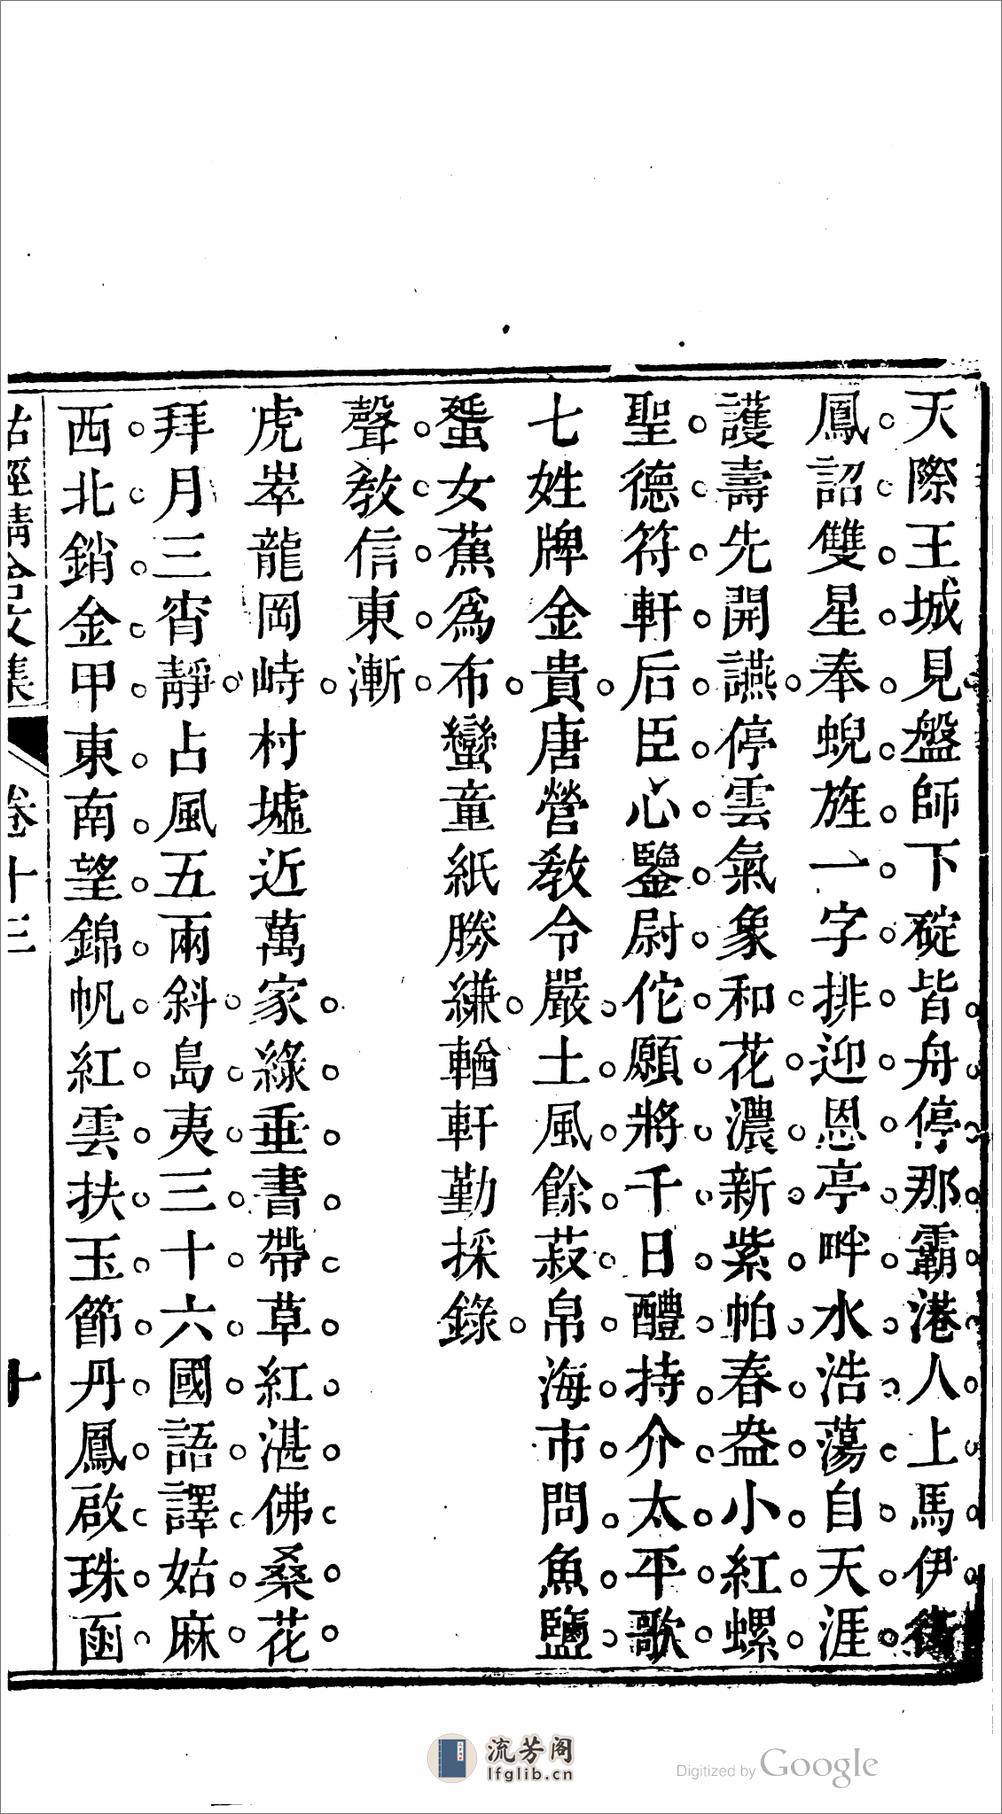 天際王城見盤師下碇皆舟停那霸港人上馬伊
鳳詔雙星奉蜺旌一字排迎恩亭畔水浩蕩自天涯
護壽先開讌停雲氣象和花濃新紫帕春盎小紅螺
聖德符軒后臣心鑒尉佗願將千日醴持介太平歌
七姓牌金貴唐營教令嚴土風餘菽帛海市問魚鹽
蜑女蕉為布蠻童紙勝縑輶軒勤採錄
聲教信東漸
虎崒龍岡峙村墟近萬家綠垂書帶草紅湛佛桑花
拜月三宵靜占風五兩斜島夷三十六國語譯姑麻
西北銷金甲東南望錦帆紅雲扶玉節丹鳳啟珠函
詁經精舍文集 卷十三 十
流芳阁
lfglib.cn
Digitized by Google